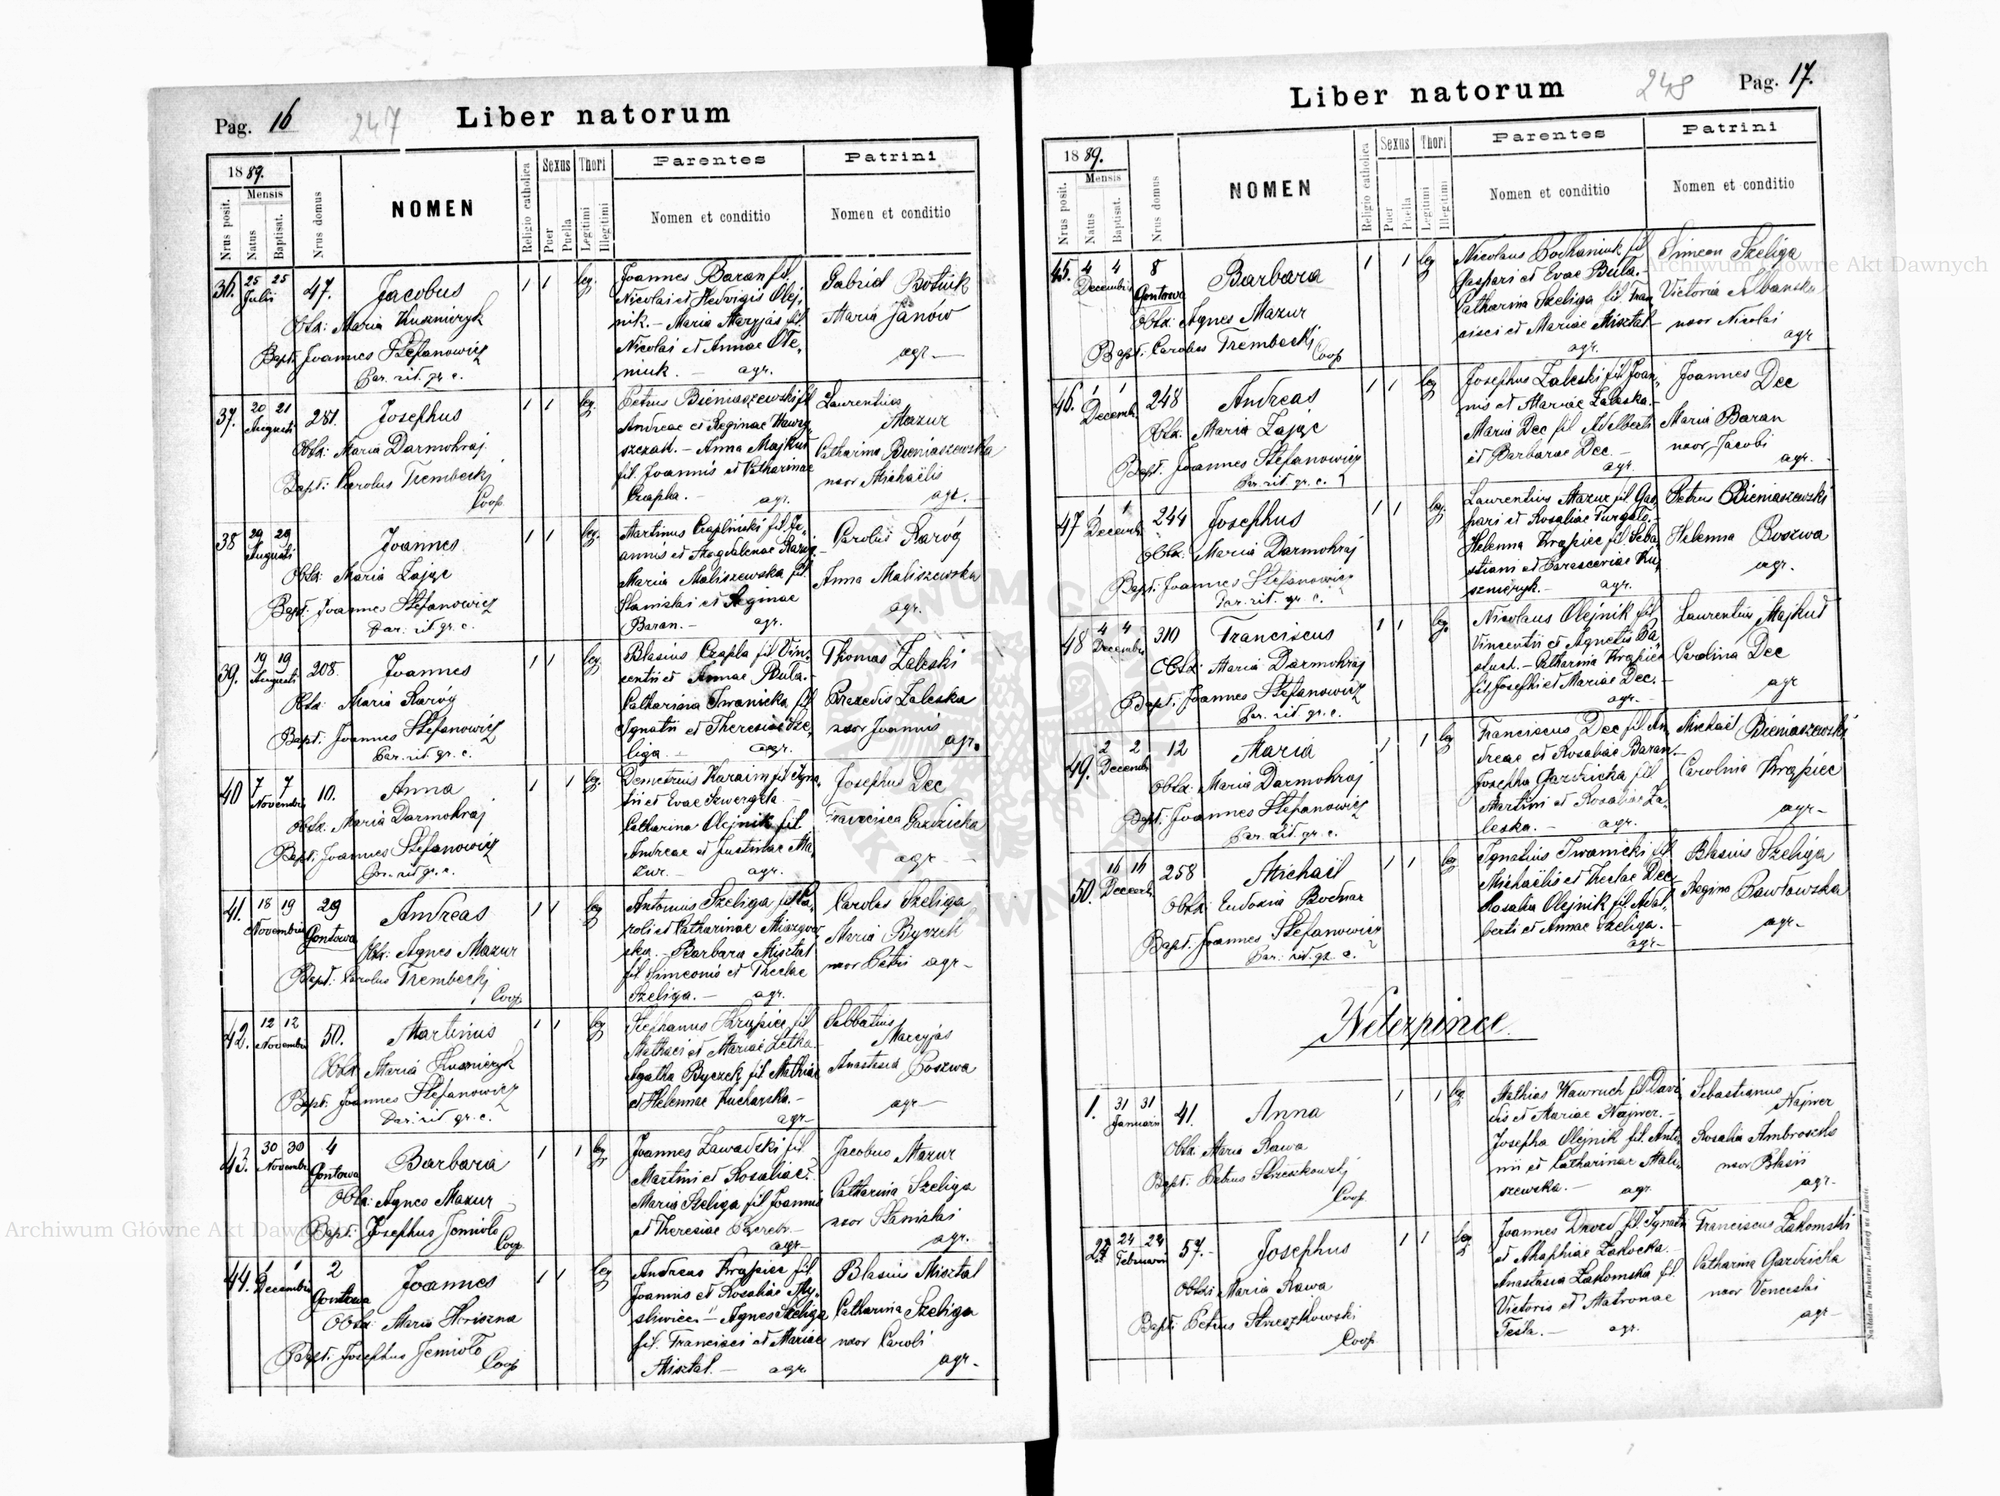 Pag. 16
247
Liber natorum
1889.
Nrus posit.
Mensis
Natus
Baptisat.
Nrus domus
NOMEN
Religio catholica
Sexus
Puer
Puella
Thori
Legitimi
Illegitimi
Parentes
Nomen et conditio
Patrini
Nomen et conditio
36. 25 25 Julii 47. Jacobus 1 1 leg.
Obst: Maria Kuszneryk
Bapt: Joannes Stefanowicz
Par. rit. gr. c.
Joannes Baran fil.
Nicolai et Hedvigis Olej
nik. – Maria Maryjas fil.
Nicolai et Annae Ole,
niuk. – agr.
Gabriel
Maria Janów
agr –
37. 20 21 Augusti 281. Josephus 1 1 leg.
Obst: Maria Darmohraj
Bapt: Carolus Trembecki
Coop.
Petrus Bieniaszewski fil
Andreae et Reginae Hawry,
szczak. – Anna Majkut
fil. Joannis et Catharinae
Czapla. – agr.
Laurentius
Mazur
Catharina Bieniaszewska
uxor Michaëlis
agr.
38 29 29 Augusti Joannes 1 1 leg.
Obst: Maria Zając
Bapt: Joannes Stefanowicz
Par. rit gr. c.
Martinus Czapliński fil. Jo,
annis et Magdalenae Raróg
Maria Maliszewska fil.
Stanislai et Reginae
Baran. – agr.
Carolus Raróg
Anna Maliszewska
agr.
39. 19 19 Augusti 208. Joannes 1 1 leg.
Obst: Maria Raróg
Bapt: Joannes Stefanowicz
Par. rit. gr. c.
Blasius Czapla fil Vin,
centii et Annae Buła. –
Catharina Iwanicka fil
Ignatii et Theresiae Sze,
liga – agr.
Thomas Zaleski
Praxedis Zaleska
uxor Joannis
agr.
40 7 7 Novembris 10. Anna 1 1 leg.
Obst: Maria Darmohraj
Bapt: Joannes Stefanowicz
Par. rit gr. c.
Demetrius Karaim fil Igna,
tii et Evae
Catharina Olejnik fil
Andreae et Justinae Ma,
zur. – agr.
Josephus Dec
Francisca Gazdzicka
agr –
41. 18 19 Novembris 29 Gontowa Andreas 1 1 leg
Obst: Agnes Mazur
Bapt: Carolus Trembecki
Coop
Antonius Szeliga fil Ca,
roli et Catharinae
ska. – Barbara Misztal
fil. Simeonis et Theclae
Szeliga. – agr.
Carolus Szeliga
Maria Byczek
uxor Petri agr –
42. 12 12 Novembris 50. Martinus 1 1 leg
Obst: Maria Kuszneryk
Bapt: Joannes Stefanowicz
Par. rit. gr. c.
Stephanus Krąpiec fil
Mathaei et Mariae Letka
Agatha Byczek fil. Mathiae
et Helennae Kucharska. –
agr –
Sabbatius
Maryjas
Anastasia Poszwa
agr –
43. 30 30 Novembris 4 Gontowa Barbara 1 1 leg
Obst: Agnes Mazur
Bapt: Josephus Jemioło
Coop
Joannes Zawadzki fil
Martini et Rosaliae?
Maria Szeliga fil Joannis
et Theresiae
agr
Jacobus Mazur
Catharina Szeliga
uxor Stanislai
agr.
44. 1 1 Decembris 2 Gontowa Joannes 1 1 leg
Obst: Maria
Bapt: Josephus Jemioło Coop
Andreas Krąpiec fil
Joannis et Rosaliae My,
śliwiec. – Agnes Szeliga
fil. Francisci et Mariae
Misztal. – agr
Blasius Misztal
Catharina Szeliga
uxor Caroli
agr –
Liber natorum
248
Pag. 17.
1889.
Nrus posit.
Mensis
Natus
Baptisat.
Nrus domus
NOMEN
Religio catholica
Sexus
Puer
Puella
Thori
Legitimi
Illegitimi
Parentes
Nomen et conditio
Patrini
Nomen et conditio
45. 4 4 Decembris 8 Gontowa Barbara 1 1 leg
Obst: Agnes Mazur
Bapt: Carolus Trembecki
Coop
Nicolaus Bochaniuk fil
Gaspari et Evae Buła. –
Catharina Szeliga fil. Fran
cisci et Mariae Misztal –
agr.
Simeon Szeliga
Victoria Albańska
uxor Nicolai
agr
46. 1 1 Decemb. 248 Andreas 1 1 leg
Obst: Maria Zając
Bapt: Joannes Stefanowicz
Par. rit. gr. c.
Josephus Zaleski fil Joan,
nis et Mariae Zaleska. –
Maria Dec fil Adalberti
et Barbarae Dec. –
agr.
Joannes Dec
Maria Baran
uxor Jacobi
agr.
47 1 1 Decemb. 244 Josephus 1 1 leg.
Obst: Maria Darmohraj
Bapt: Joannes Stefanowicz
Par. rit. gr. c.
Laurentius Mazur fil. Gas,
pari et Rosaliae Furgało. –
Helenna Krąpiec fil Seba,
stiani et Parasceviae Ku,
szneryk. – agr.
Petrus Bieniaszewski
Helenna Poszwa
agr.
48 4 4 Decembris 310 Franciscus 1 1 leg.
Obst: Maria Darmohraj
Bapt: Joannes Stefanowicz
Par. rit. gr. c.
Nicolaus Olejnik fil
Vincentii et Agnetis
Catharina Krąpiec
fil. Josephi et Mariae Dec. –
agr –
Laurentius Majkut
Carolina Dec
agr
49. 2 2 Decemb. 12 Maria 1 1 leg
Obst: Maria Darmohraj
Bapt: Joannes Stefanowicz
Par. rit. gr. c.
Franciscus Dec fil An
dreae et Rosaliae Baran –
Josepha Gazdzicka fil
Martini et Rosaliae Za,
leska. – agr.
Michael Bieniaszewski
Carolina Krąpiec
agr –
50. 16 16 Decemb. 258 Michaël 1 1 leg
Obst: Eudoxia Bodnar
Bapt: Joannes Stefanowicz
Par. rit. gr. c.
Ignatius Iwanicki fil
Michaëlis et Theclae Dec
Rosalia Olejnik fil. Adal,
berti et Annae Szeliga. –
agr –
Blasius Szeliga
Regina Pawłowska
agr –
Neterpińce.
1. 31 31 Januarii 41. Anna 1 1 leg.
Obst: Maria Rawa
Bapt: Petrus Strzeszkowski
Coop
Mathias Wawruch fil. Davi
dis et Mariae Najwer. –
Josepha Olejnik fil. Anto,
nii et Catharinae Mali,
szewska. – agr
Sebastianus
Najwer
Rosalia
uxor Blasii
agr –
2. 24 24 Februarii 57. – Josephus 1 1 leg
Obst: Maria Rawa
Bapt: Petrus Strzeszkowski
Coop
Joannes Drozd fil. Ignatii
et Agaphiae
Anastasia Zakomska fil.
Victoris et Matronae
Tesla. – agr.
Franciscus Zakomski
Catharina Gazdzicka
uxor Venceslai
agr –
Nakładem Drukarni Ludowej we Lwowie.
Archiwum Główne Akt Dawnych
Archiwum Główne Akt Dawnych